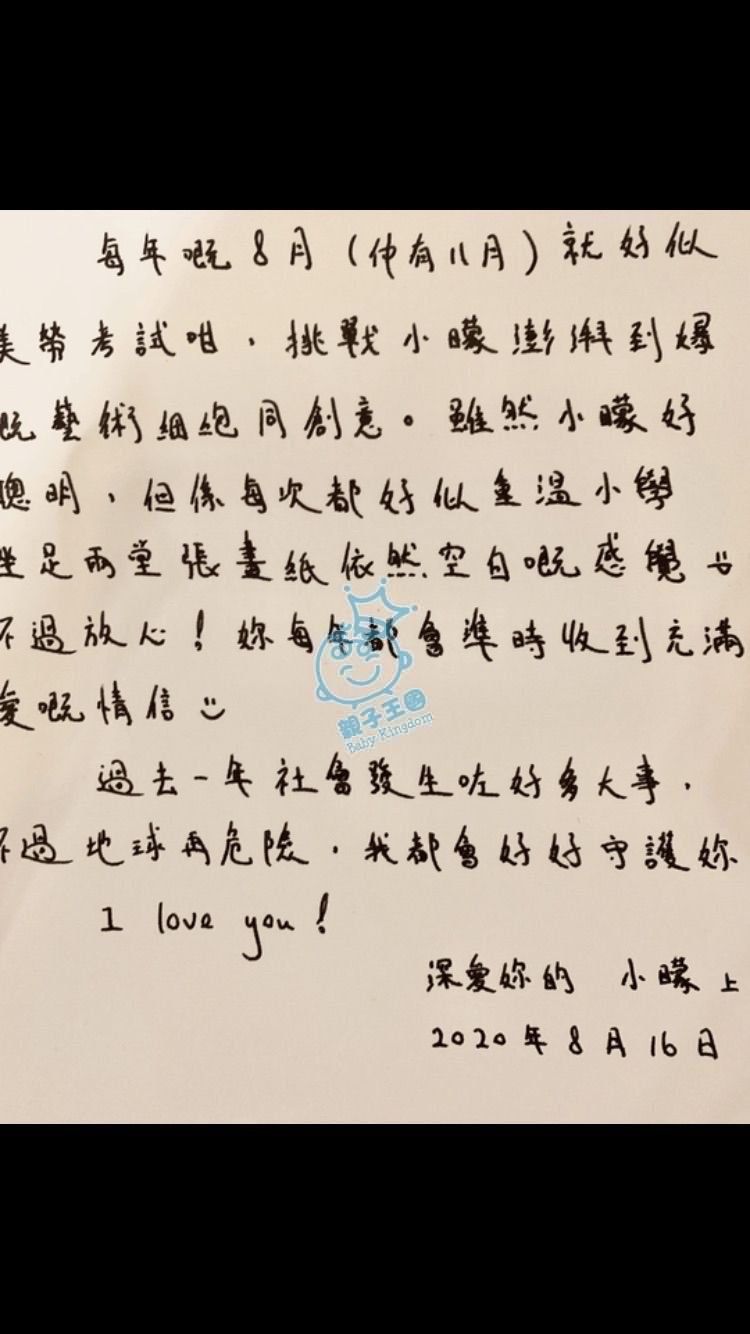 每年嘅8月(仲有11月)就好似
美勞考試咁,挑戰小曚澎湃到爆
嘅藝術細胞同創意。雖然小曚好
聰明,但係每次都好似重溫小學
坐足兩堂張畫紙依然空白嘅感覺
不過放心!妳每年都會準時收到充滿
愛嘅情信
親子王國
Baby Kingdom
過去一年社會發生咗好多大事,
不過地球再危險,我都會好好守護妳
I love you!
深愛妳的 小曚上
2020年8月16日